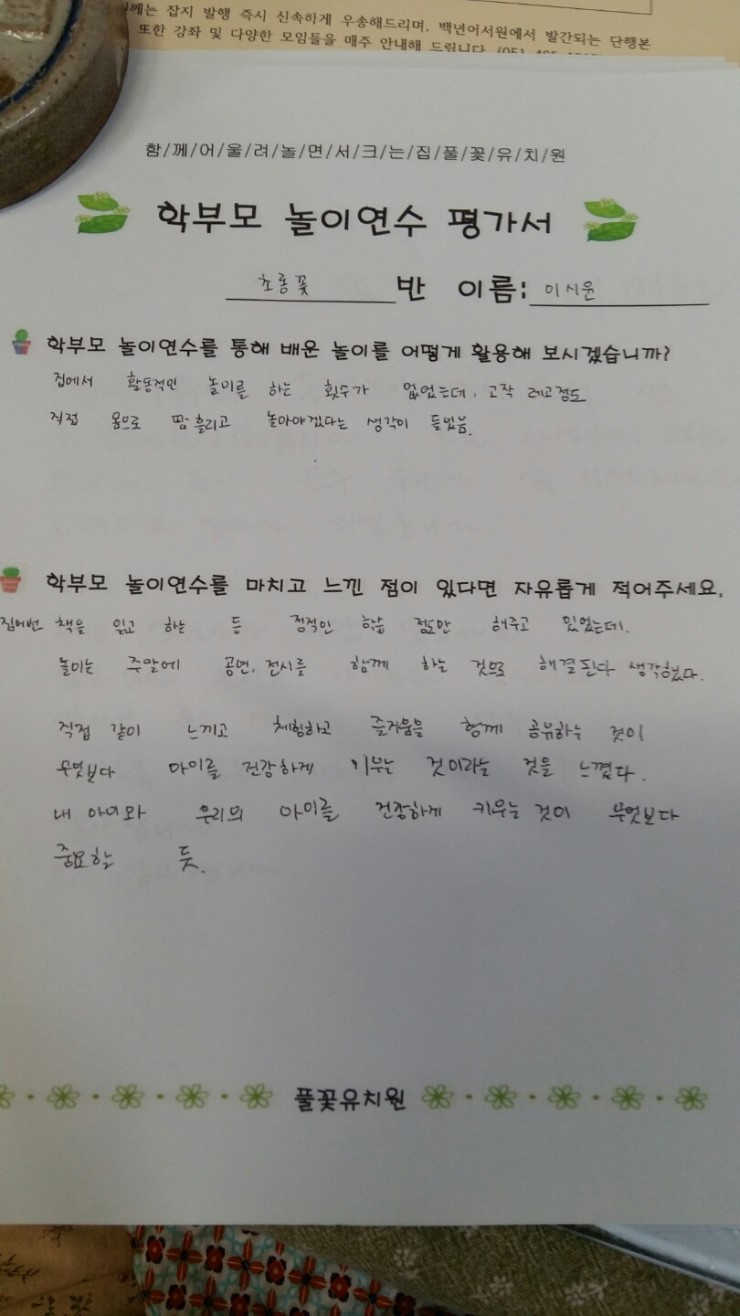 께는 잡지 발행 즉시 신속하게 우송해드리며, 백년어서원에서 발간되는 단행본
또한 강좌 및 다양한 모임들을 매주 안내해 드립니다. (051
함/께/어/울/려/놀/면/서/크/는/집/풀/꽃/유/치/원
학부모 놀이연수 평가서
초롱꽃 반 이름: 이시윤
학부모 놀이연수를 통해 배운 놀이를 어떻게 활용해 보시겠습니까?
집에서 활용적인 놀이를 하는 횟수가 없었는데, 고작 레고정도
직접 몸으로 땀 흘리고 놀아야겠다는 생각이 들었음.
학부모 놀이연수를 마치고 느낀 점이 있다면 자유롭게 적어주세요.
책을 읽고 하는 등 정적인 학습 정도만 해주고 있었는데.
놀이는 주말에 공연, 전시를 함께 하는 것으로 해결된다 생각했다.
직접 같이 느끼고 체험하고 즐거움을 함께 공유하는 것이
무엇보다 아이를 건강하게 키우는 것이라는 것을 느꼈다.
내 아이와 우리의 아이를 건강하게 키우는 것이 무엇보다
중요한 듯.
풀꽃유치원